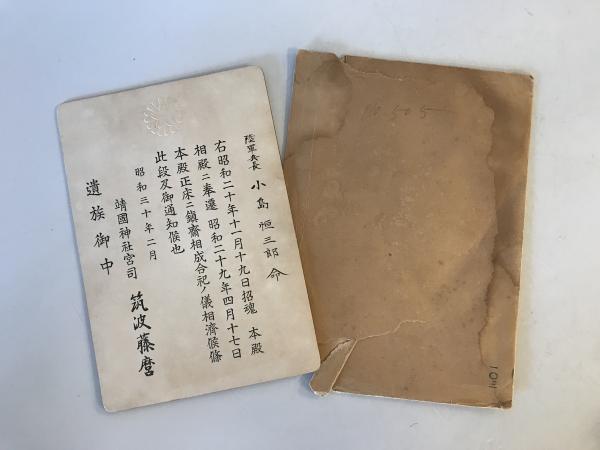 陸軍兵長 小島恒三郎命
右昭和二十年十一月十九日招魂 本殿
相殿ニ奉遷 昭和二十九年四月十七日
本殿正床ニ鎮齋相成合祀ノ儀相濟候條
此段及御通知候也
昭和三十年二月
靖國神社宮司 筑波藤麿
遺族御中
No 505
1101